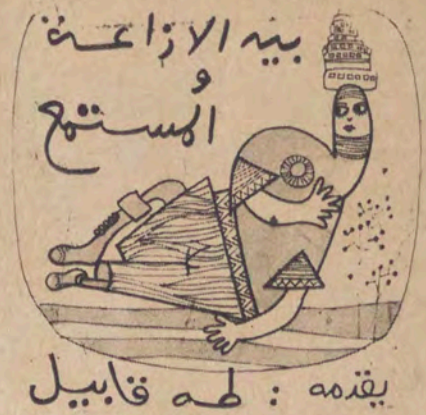 بين الازاعة
و
المستمع
يقدمه : طه قابيل